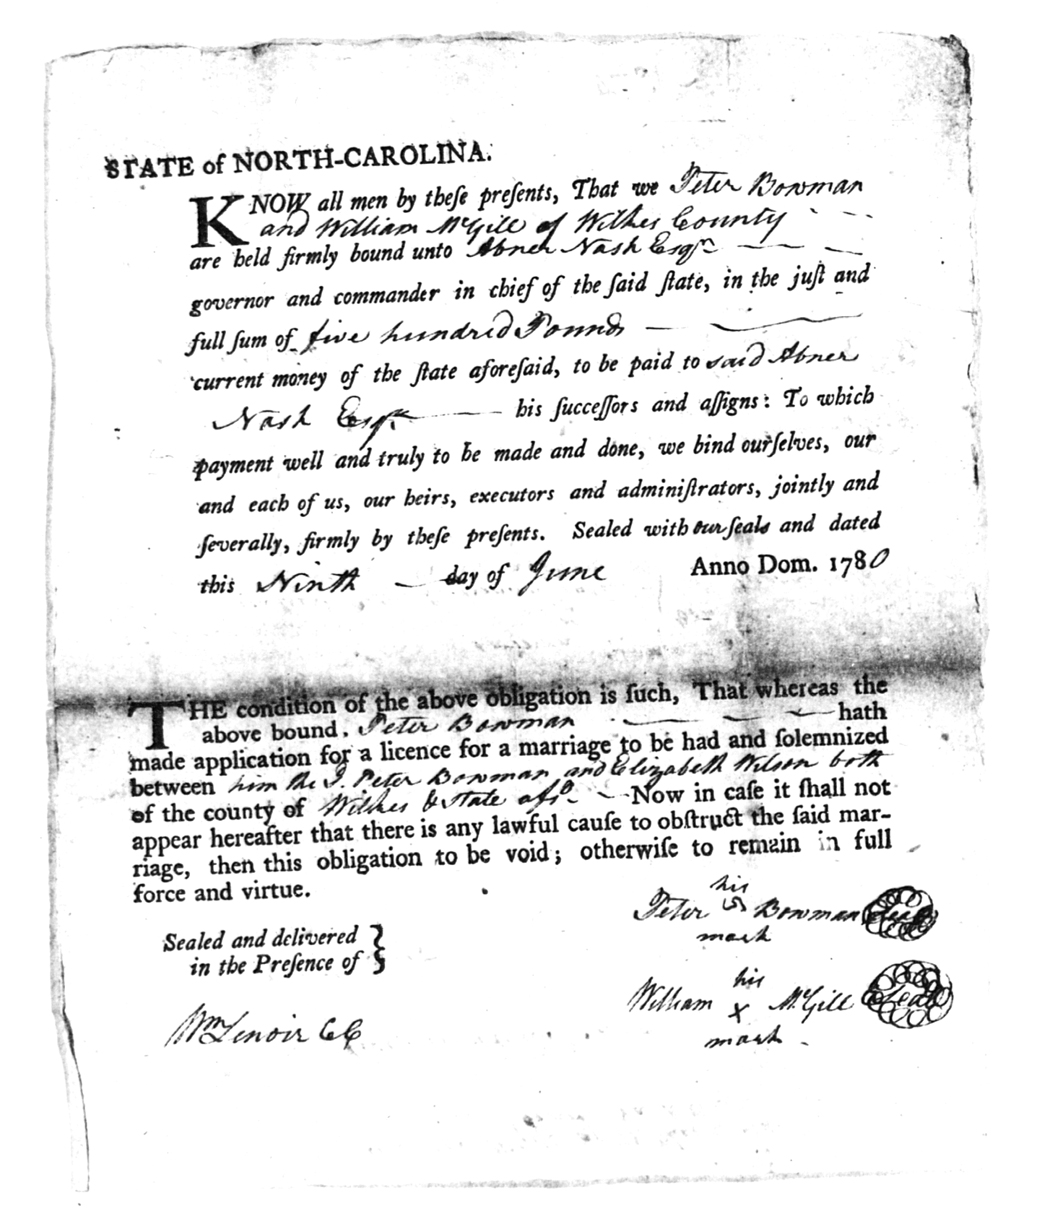 STATE of NORTH-CAROLINA.
KNOW all men by theſe preſents, That we Peter Bowman
and William McGill of Wilkes County
are held firmly bound unto Abner Nash Esqr.
governor and commander in chief of the ſaid ſtate, in the juſt and
full ſum of five hundred Pounds
current money of the ſtate aforeſaid, to be paid to said Abner
Nash Esqr. his ſucceſſors and aſſigns: To which
payment well and truly to be made and done, we bind ourſelves, our
and each of us, our heirs, executors and adminiſtrators, jointly and
ſeverally, firmly by theſe preſents. Sealed with our ſeals and dated
this Ninth day of June Anno Dom. 1780
THE condition of the above obligation is ſuch, That whereas the
above bound, Peter Bowman hath
made application for a licence for a marriage to be had and ſolemnized
between him the sd. Peter Bowman and Elizabeth Wilson both
of the county of Wilkes & State afsd. Now in caſe it ſhall not
appear hereafter that there is any lawful cauſe to obſtruct the ſaid mar-
riage, then this obligation to be void; otherwiſe to remain in full
force and virtue.
his
Peter Bowman Seal
mark
Sealed and delivered
in the Preſence of
his
William x McGill Seal
mark
Wm Lenoir CC